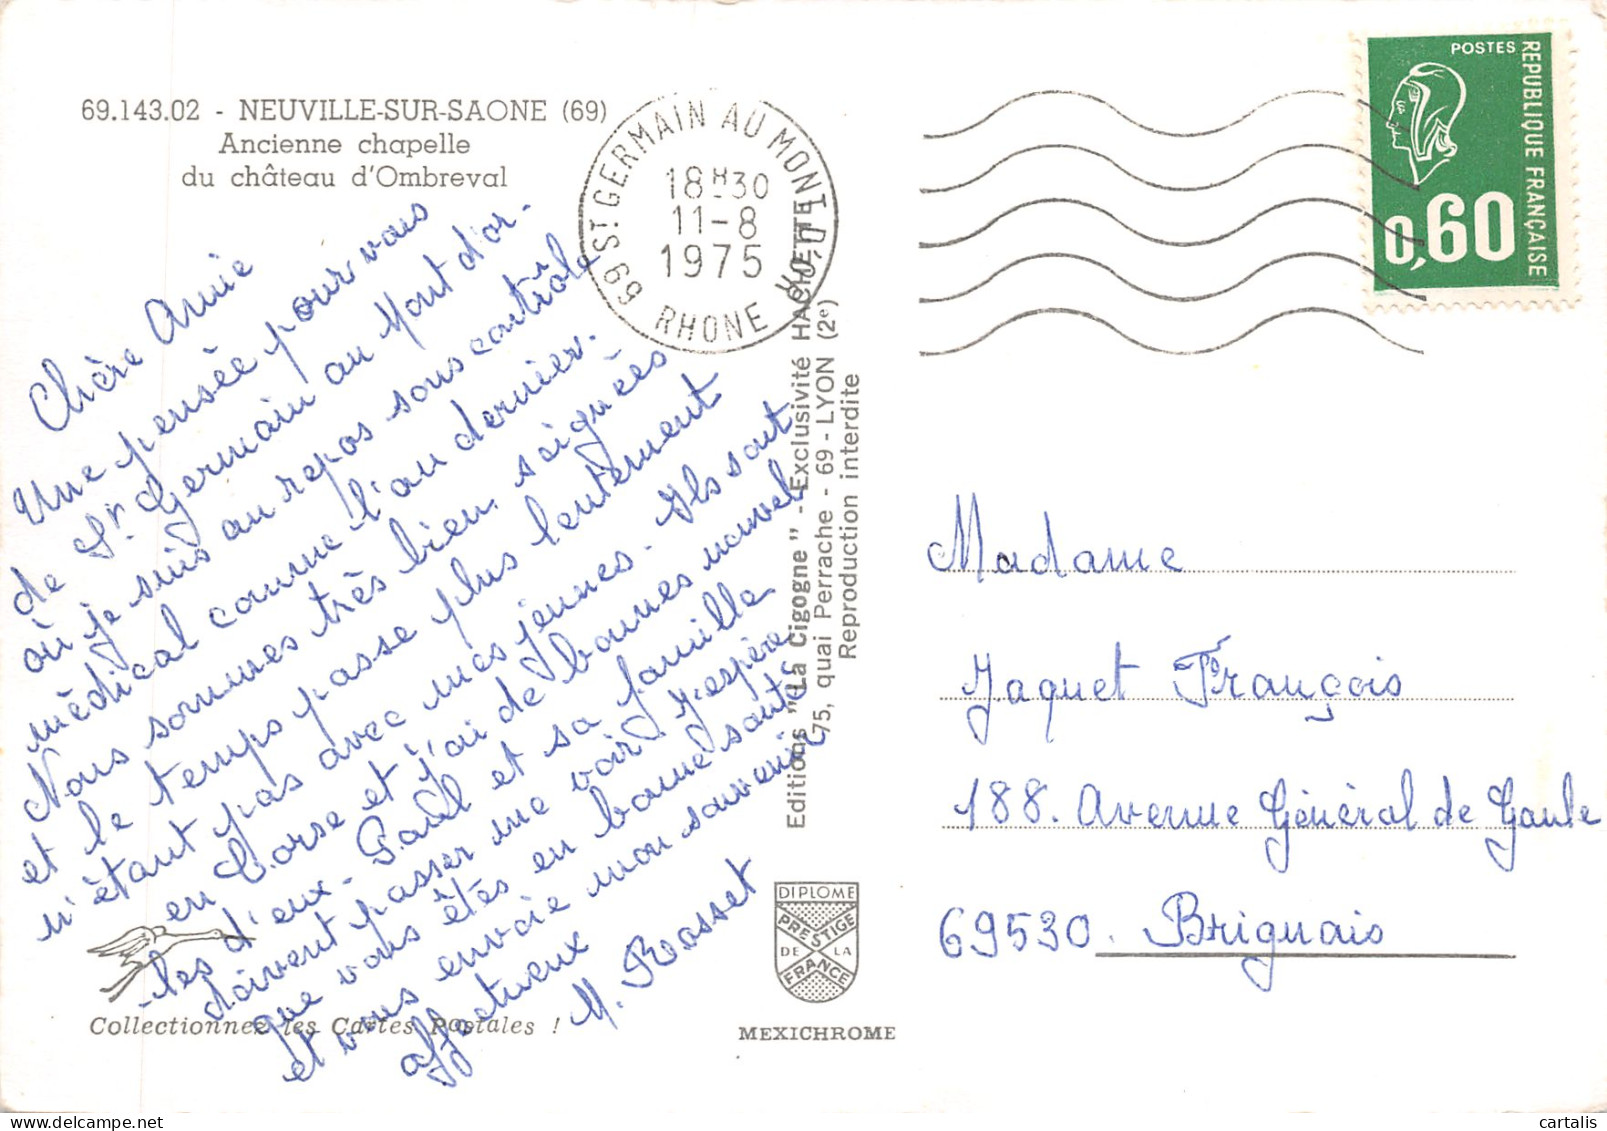 69.143.02 - NEUVILLE-SUR-SAONE (69)
Ancienne chapelle
du château d'Ombreval
Chère Amie
Une pensée pour vous
de St. Germain au Mont d'or.
où je suis au repos sous contrôle
médical comme l'an dernier.
Nous sommes très bien soignées
et le temps passe plus lentement
n'étant pas avec mes jeunes. Ils sont
en Corse et j'ai de bonnes nouvel
-les d'eux. Paul et sa famille
doivent passer me voir. J'espère
que vous êtes en bonne santé
et vous envoie mon souvenir
affectueux
M. Rosset
Collectionnez les Cartes Postales !
ST GERMAIN AU MONT D'OR
18H30
11-8
1975
69 RHONE
Editions "La Cigogne" - Exclusivité HACHETTE
75, quai Perrache - 69 - LYON (2e)
Reproduction interdite
DIPLOME
PRESTIGE
DE LA
FRANCE
MEXICHROME
POSTES
REPUBLIQUE FRANÇAISE
0,60
Madame
Jaquet François
188. Avenue Général de Gaule
69530. Brignais
delcampe.net
cartalis